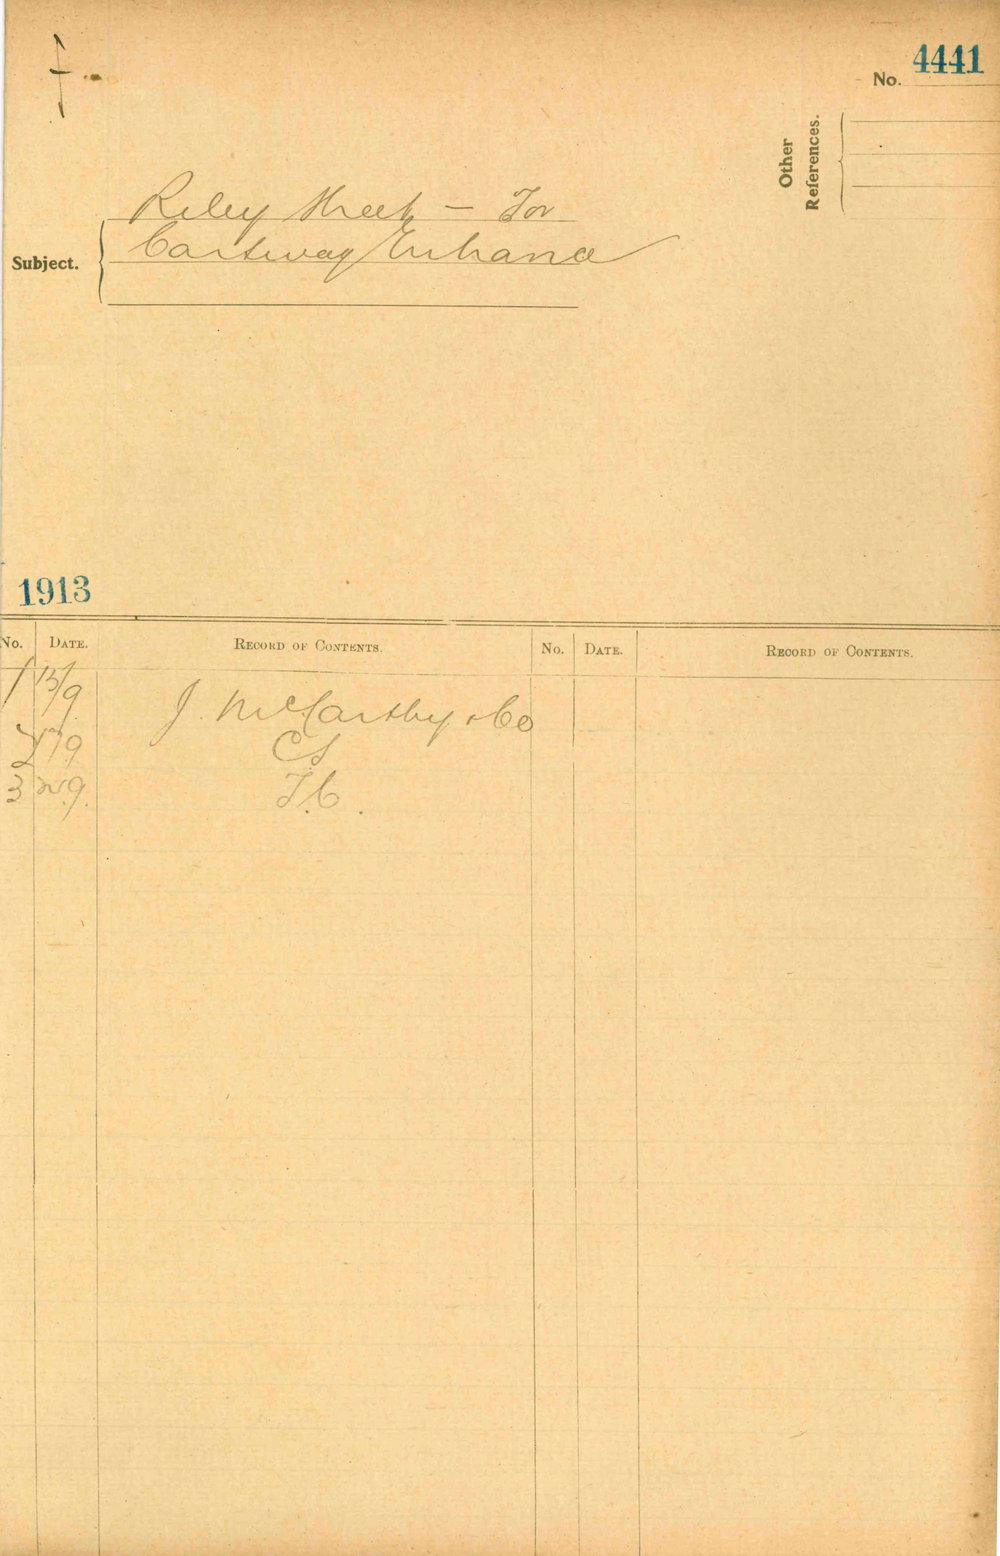 No. 4441
Other References.
Riley Street - For
Subject.
Cartway Entrance
1913
No. DATE. RECORD OF CONTENTS. No. DATE. RECORD OF CONTENTS.
1 15/9 J. McCarthy & Co
2 17/9 CS
3 9. T.C.